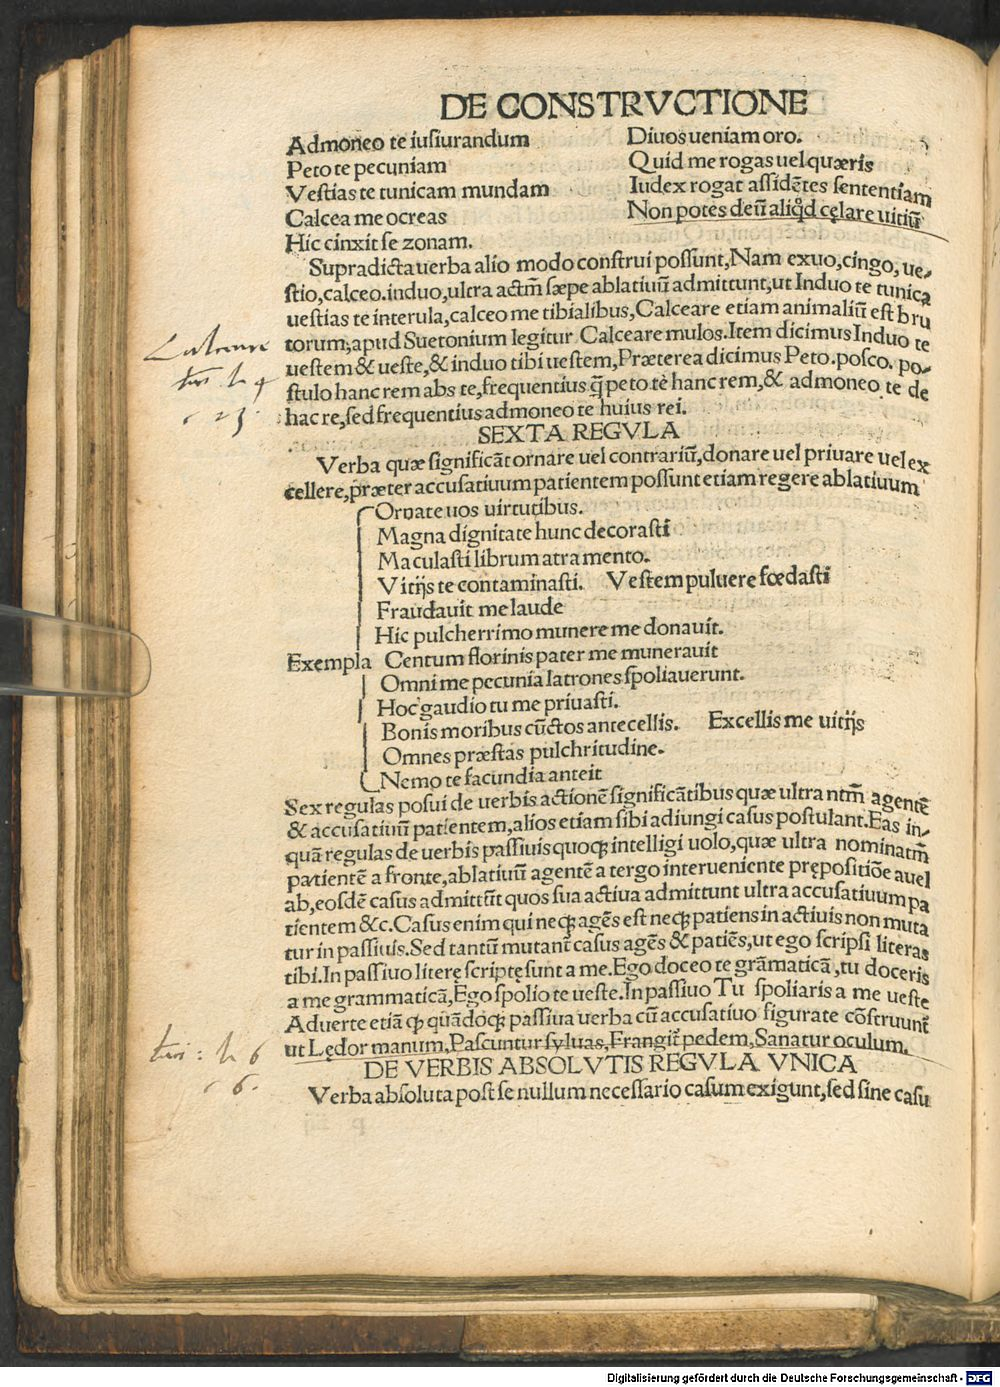 DE CONSTRVCTIONE
Admoneo te iusiurandum Diuos ueniam oro.
Peto te pecuniam Quid me rogas uel quæris
Vestias te tunicam mundam Iudex rogat assidētes sententiam
Calcea me ocreas Non potes deū aliqd cęlare uitiū
Hic cinxit se zonam.
Supradicta uerba alio modo construi possunt, Nam exuo, cingo, ue-
stio, calceo. induo, ultra actm̄ sæpe ablatiuū admittunt, ut Induo te tunica
uestias te interula, calceo me tibialibus, Calceare etiam animaliū est bru
torum, apud Suetonium legitur Calceare mulos. Item dicimus Induo te
uestem & ueste, & induo tibi uestem, Præterea dicimus Peto. posco. po-
stulo hanc rem abs te, frequentius q̄ peto te hanc rem, & admoneo te de
hac re, sed frequentius admoneo te huius rei.
Calceare
SEXTA REGVLA
Verba quæ significāt ornare uel contrariū, donare uel priuare uel ex
cellere, præter accusatiuum patientem possunt etiam regere ablatiuum
Ornate uos uirtutibus.
Magna dignitate hunc decorasti
Maculasti librum atramento.
Vitijs te contaminasti. Vestem puluere fœdasti
Fraudauit me laude
Hic pulcherrimo munere me donauit.
Exempla Centum florinis pater me munerauit
Omni me pecunia latrones spoliauerunt.
Hoc gaudio tu me priuasti.
Bonis moribus cūctos antecellis. Excellis me uitijs
Omnes præstas pulchritudine.
Nemo te facundia anteit
Sex regulas posui de uerbis actionē significātibus quæ ultra ntm̄ agentē
& accusatiuū patientem, alios etiam sibi adiungi casus postulant. Eas in-
quā regulas de uerbis passiuis quoqꝫ intelligi uolo, quæ ultra nominatm̄
patientē a fronte, ablatiuū agentē a tergo interueniente prępositiōe a uel
ab, eosdē casus admittūt quos sua actiua admittunt ultra accusatiuum pa
tientem &c. Casus enim qui neqꝫ agēs est neqꝫ patiens in actiuis non muta
tur in passiuis. Sed tantū mutant̄ casus agēs & patiēs, ut ego scripsi literas
tibi. In passiuo literę scriptę sunt a me. Ego doceo te grāmaticā, tu doceris
a me grammaticā, Ego spolio te ueste. In passiuo Tu spoliaris a me ueste
Aduerte etiā qꝫ quādoqꝫ passiua uerba cū accusatiuo figurate cōstruunt̄
ut Lędor manum, Pascuntur syluas, Frangit̄ pedem, Sanatur oculum.
DE VERBIS ABSOLVTIS REGVLA VNICA
Verba absoluta post se nullum necessario casum exigunt, sed sine casu
Digitalisierung gefördert durch die Deutsche Forschungsgemeinschaft - DFG